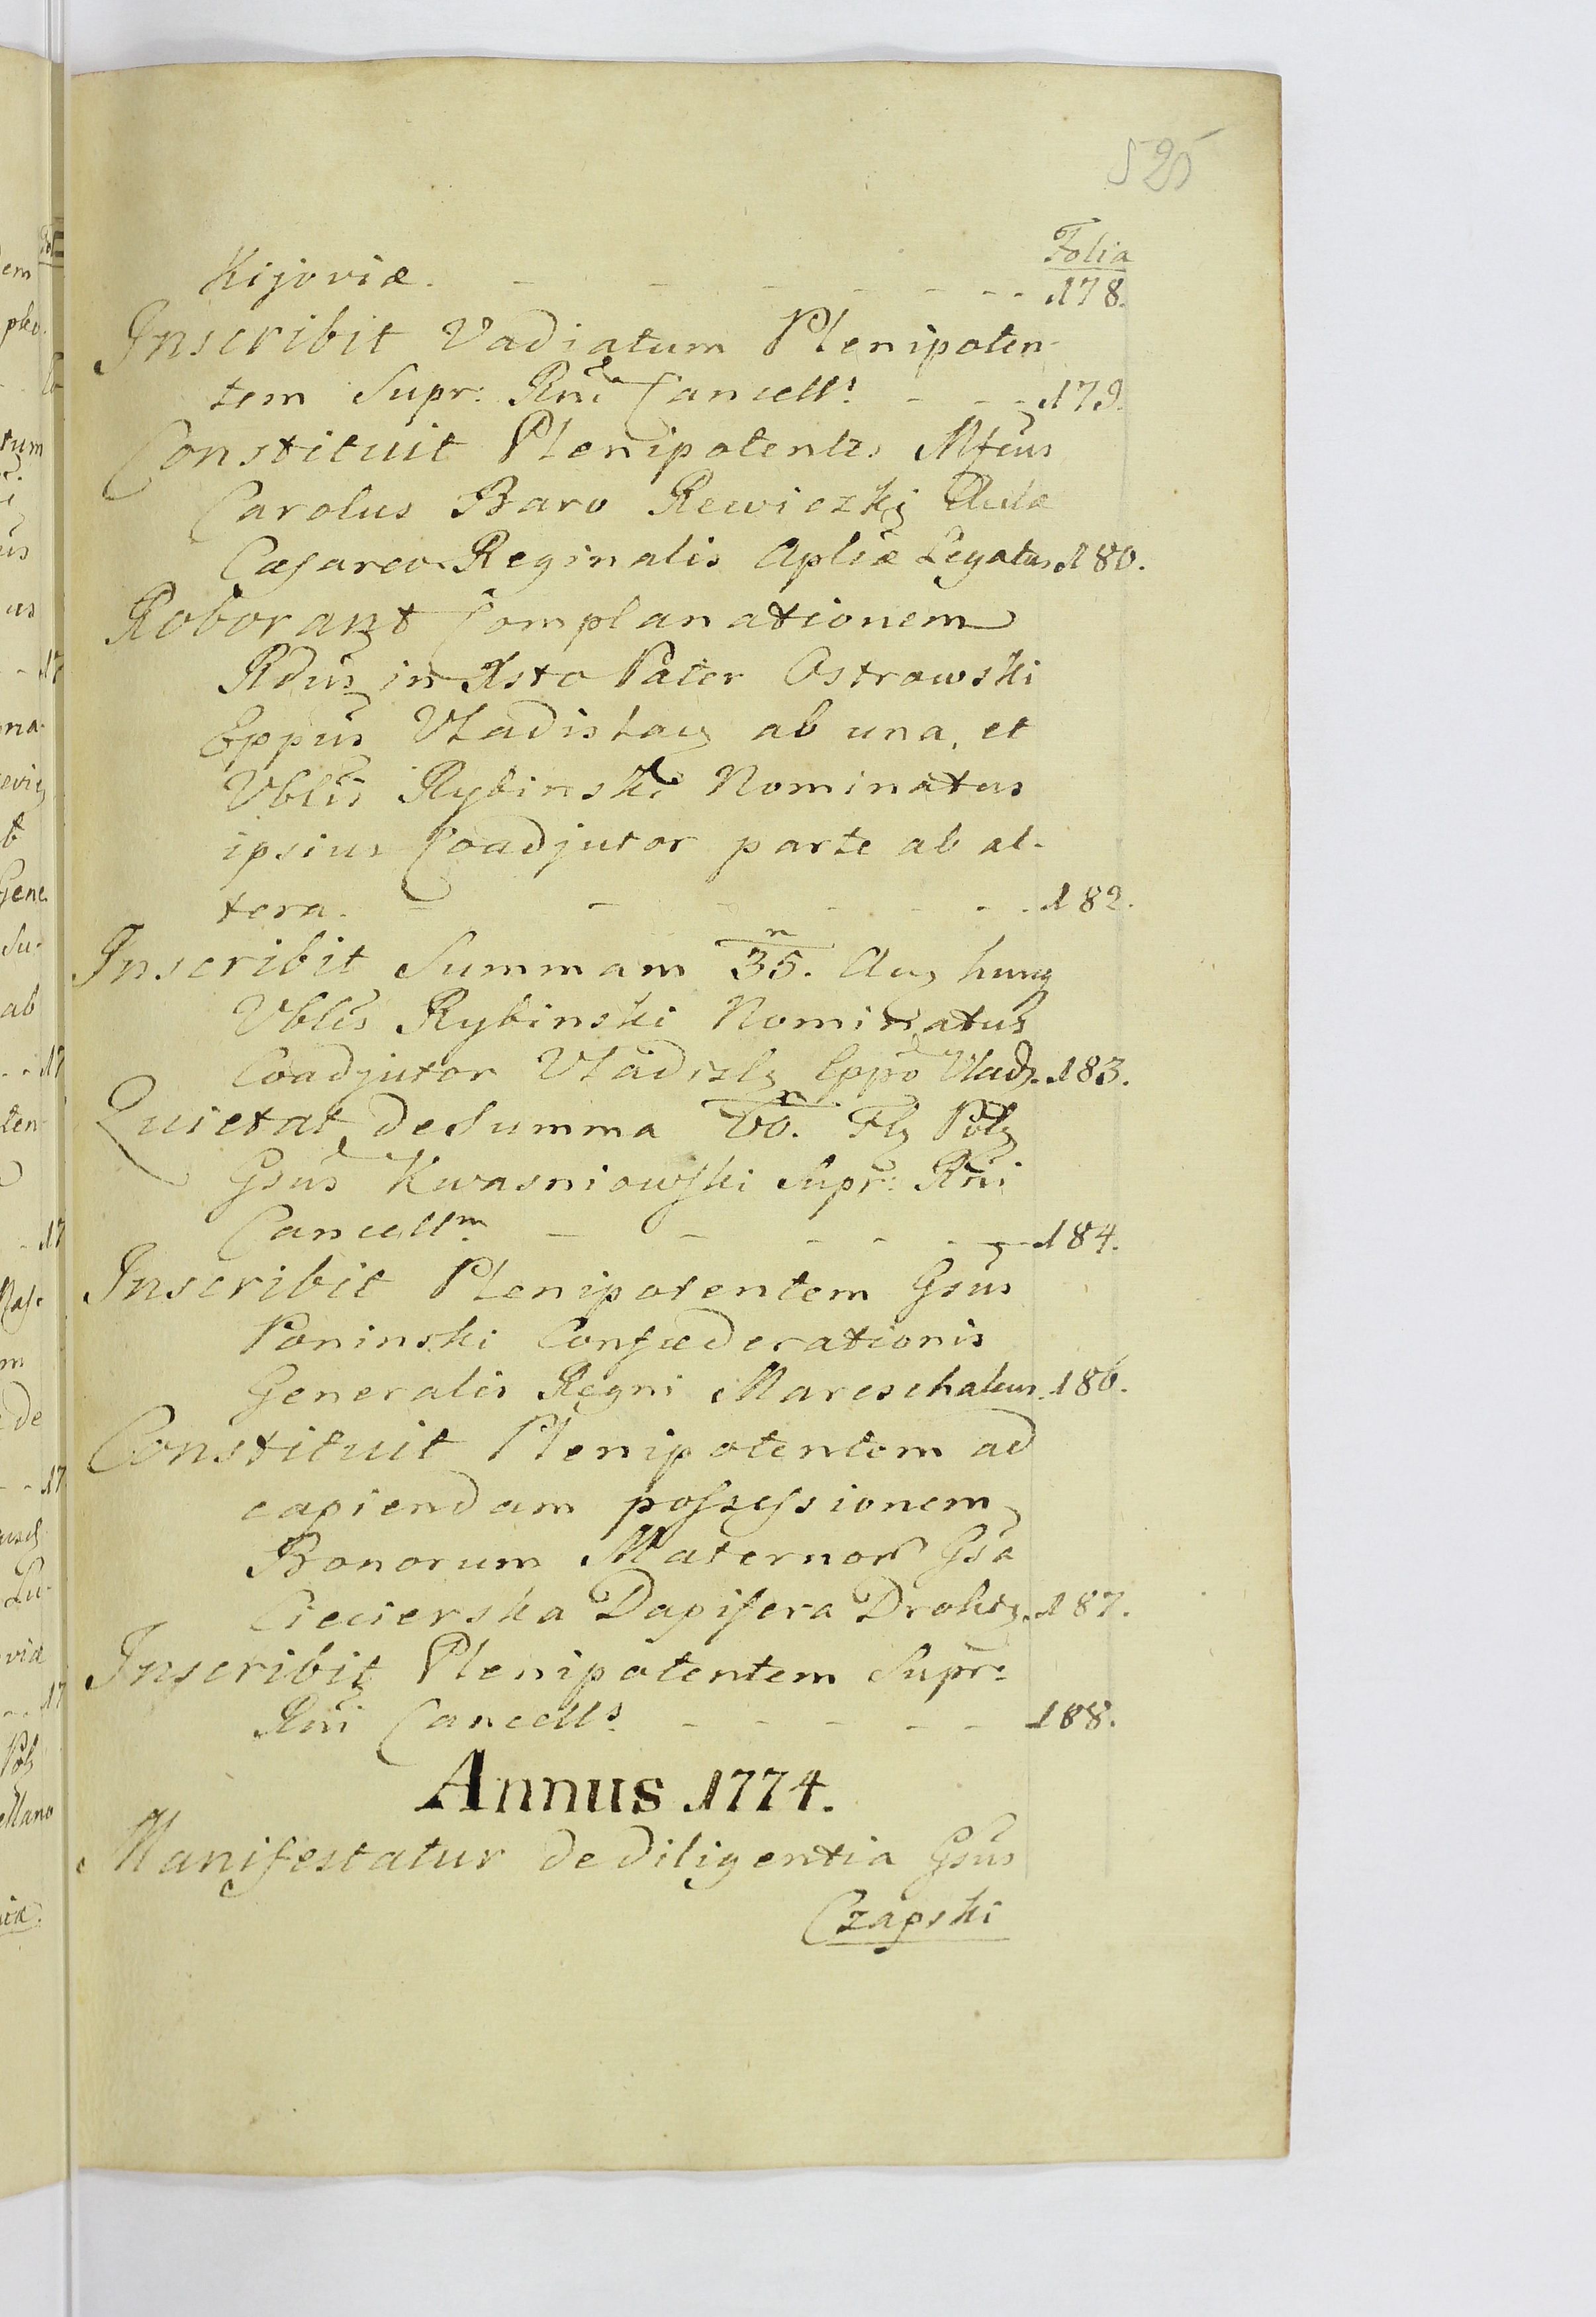 525
Folia
Kijoviæ. - - - - - - - 178.
Inscribit Vadiatum Plenipoten-
tem Supr: Rni Cancells - - - 179.
Constituit Plenipotentes Mfcus
Carolus Baro Rewiczkj Aulæ
Cæsareo-Reginalis Apliæ Legatus 180.
Roborant Complanationem
Rdus in Xsto Pater Ostrowski
Eppus Vladislaẏ ab una, et
Vblis Rybinski Nominatus
ipsius Coadjutor parte ab al-
tera. - - - - - - - 182.
Inscribit Summam 35. Aur hung
Vblis Rybinski Nominatus
Coadjutor Vladisl Eppo Vlad. 183.
Quietat de Summa Fl Pol
Gsus Kwasniowski Supr: Rni
Cancellm - - - - - - 184.
Inscribit Plenipotentem Gsus
Poninski Confæderationis
Generalis Regni Mareschalcus. 186.
Constituit Plenipotentem ad
capiendam possessionem
Bonorum Maternor Gsa
Ciecierska Dapifera Drohic. 187.
Inscribit Plenipotentem Supr:
Rni Cancells - - - - - 188.
Annus 1774.
Manifestatur de diligentia Gsus
Czapski